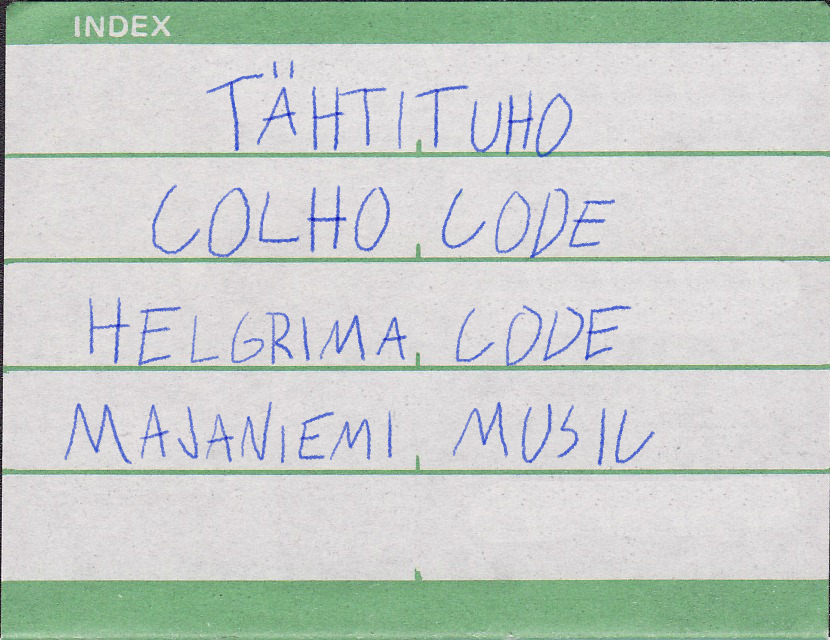 INDEX
TÄHTITUHO
COLHO CODE
HELGRIMA CODE
MAJANIEMI MUSIC